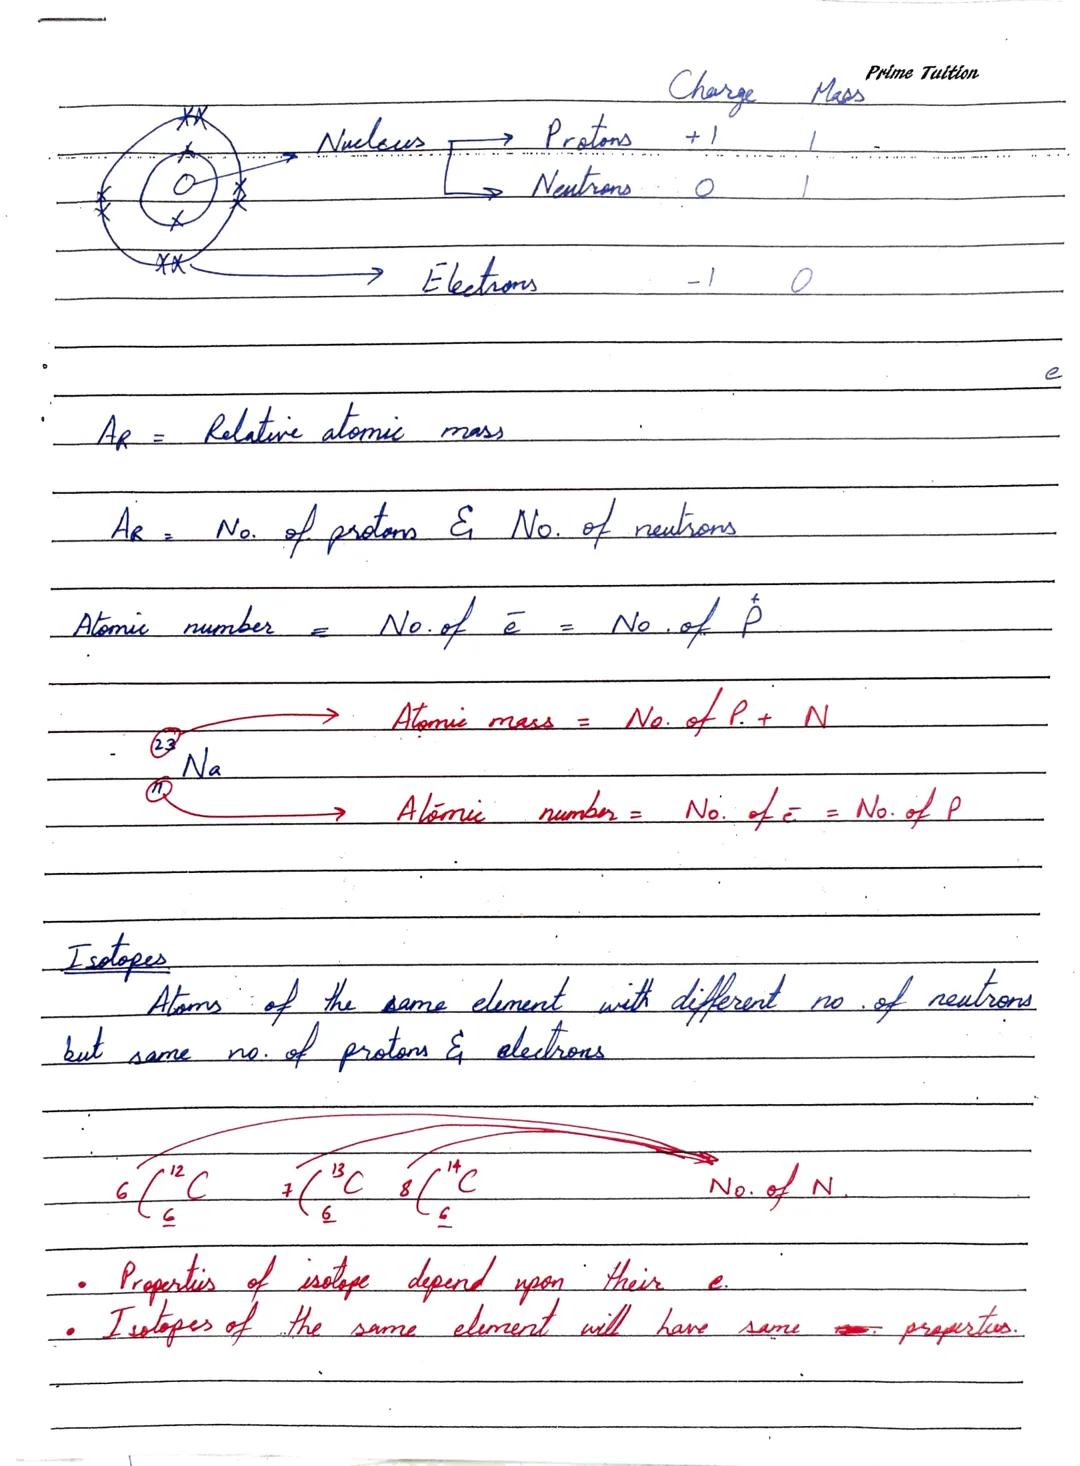 Prime Tuition
Charge Mass
Nucleus → Protons +1 1
→ Neutrons 0 1
Electrons -1 0
e
AR = Relative atomic mass
AR = No. of protons & No. of neutrons
Atomic number = No. of ē = No. of P⁺
23 → Atomic mass = No. of P. + N
Na
11 → Atomic number = No. of ē = No. of P
Isotopes
Atoms of the same element with different no. of neutrons
but same no. of protons & electrons
6 ( ¹²C 7 ( ¹³C 8 ( ¹⁴C No. of N.
6 6 6
• Propertiis of isotope depend upon their e.
• Isotopes of the same element will have same propertus.